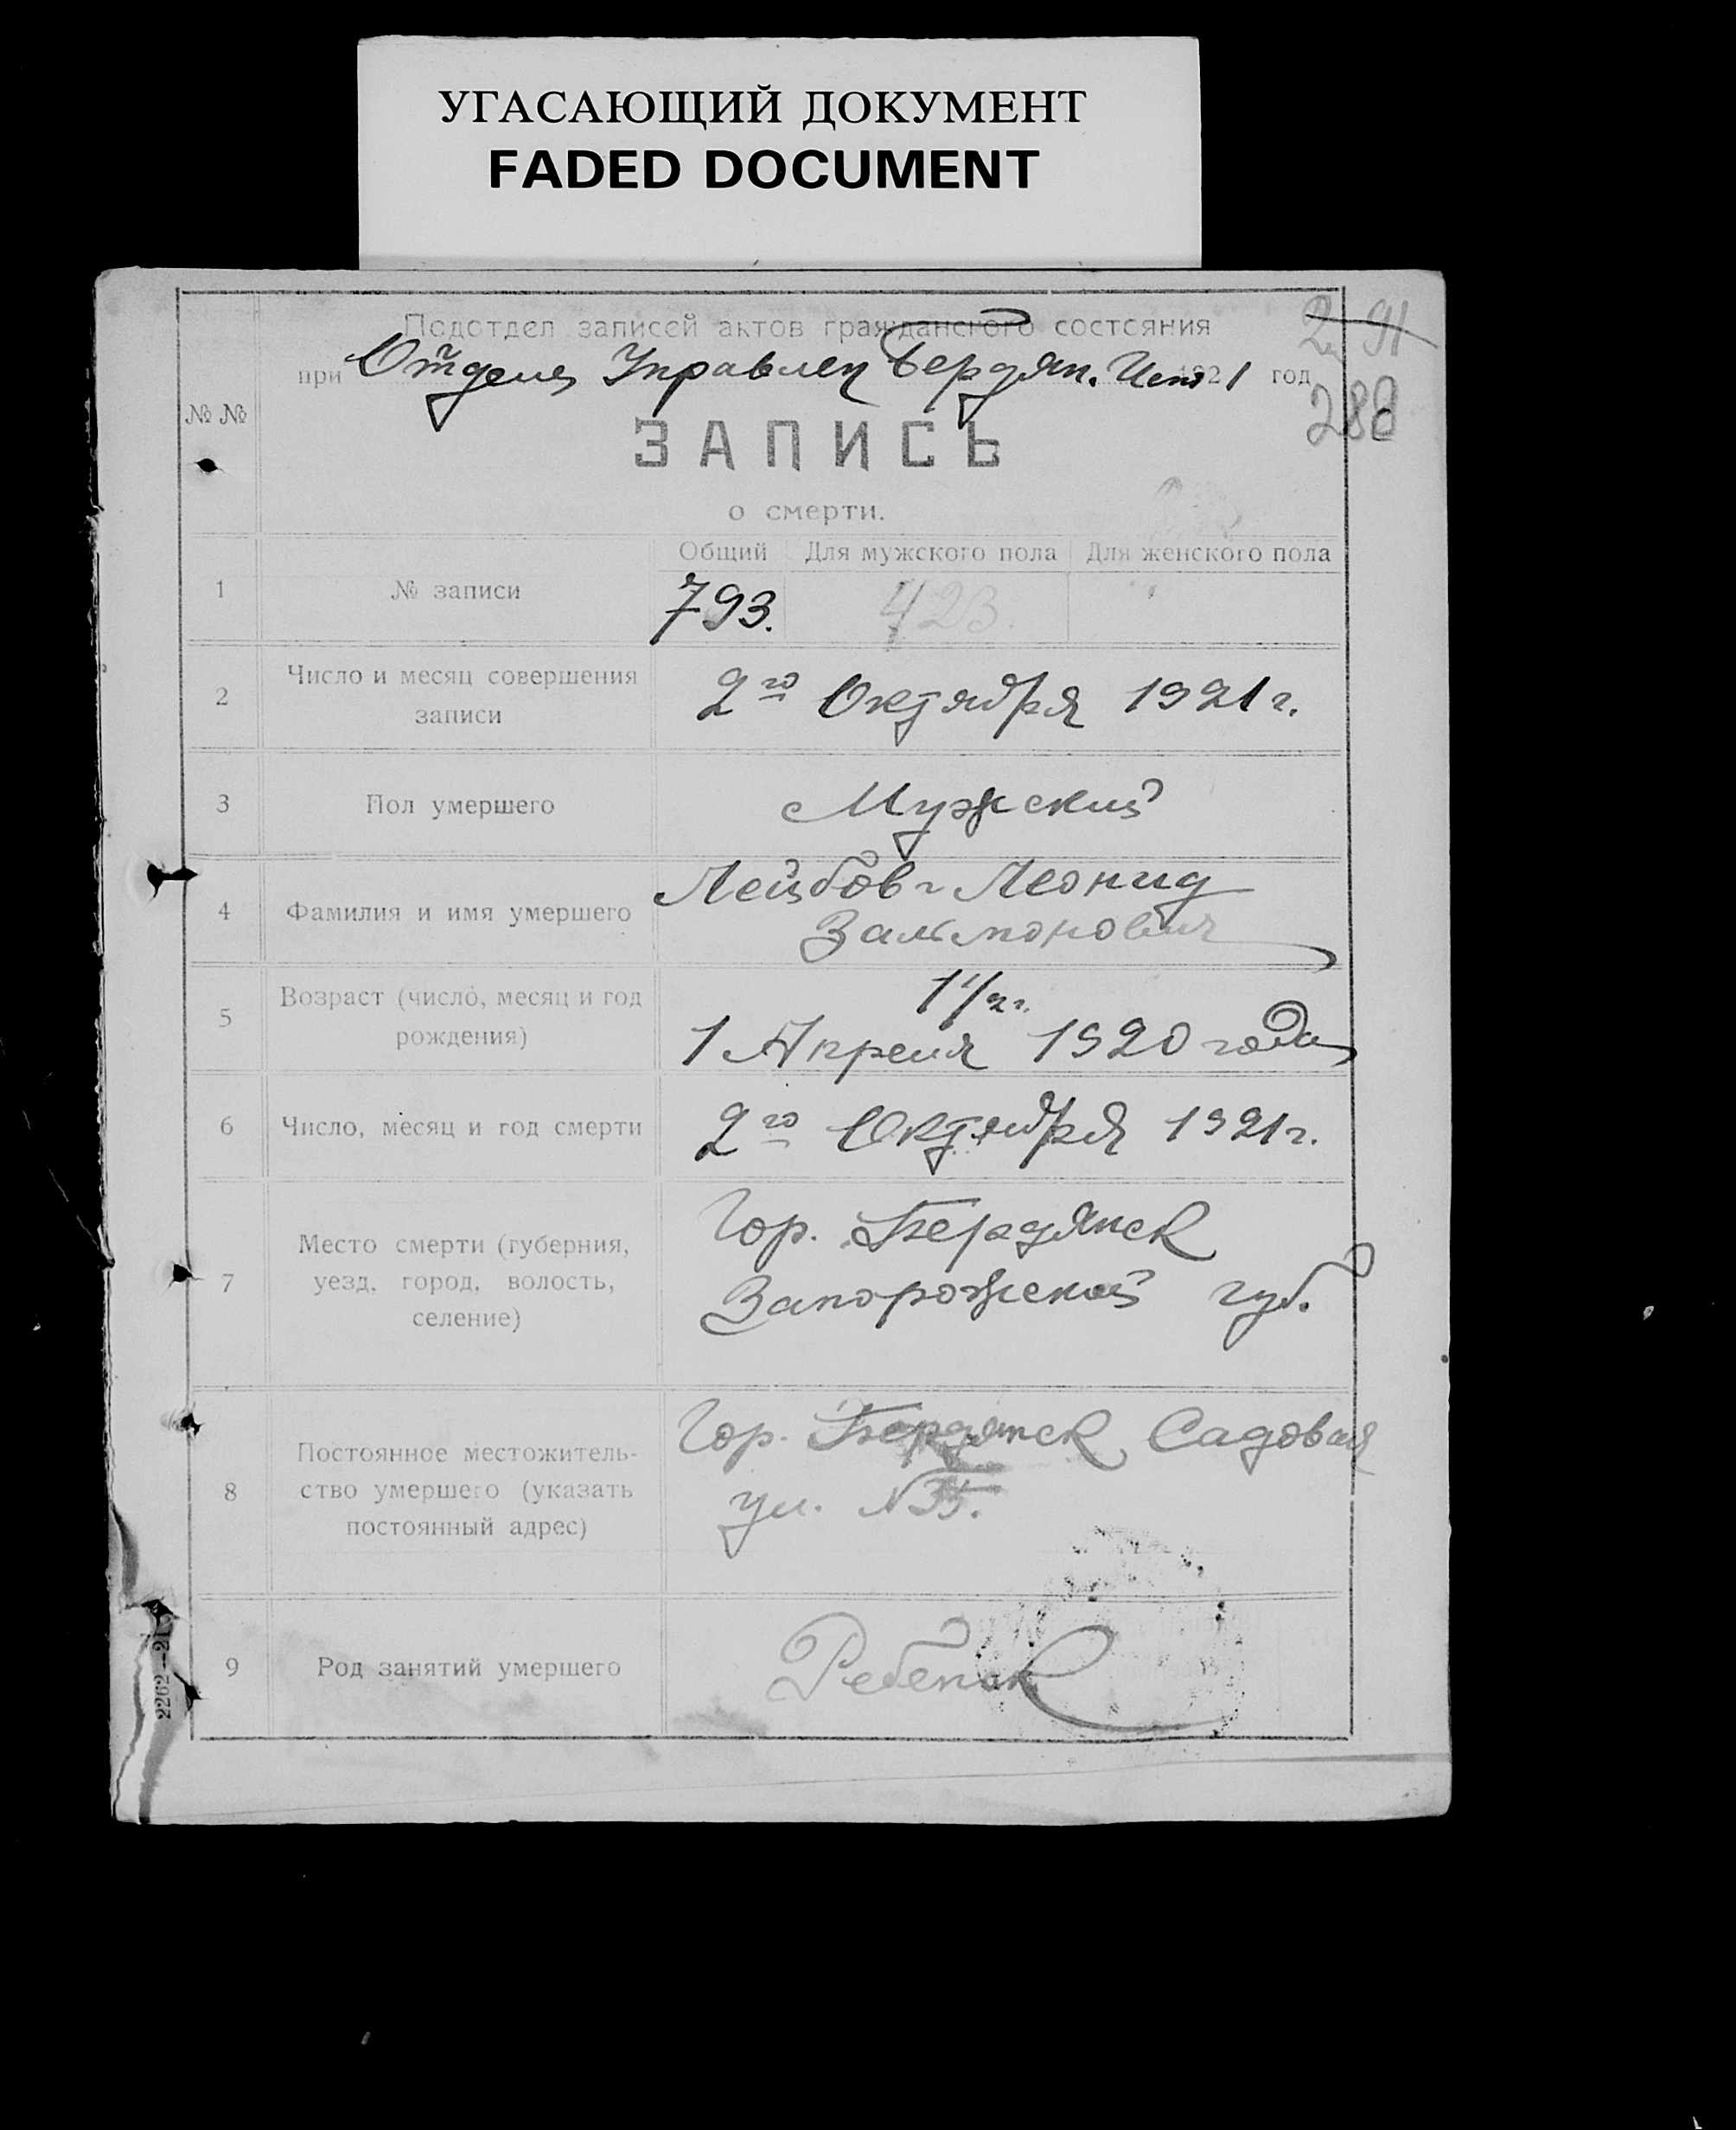 УГАСАЮЩИЙ ДОКУМЕНТ
FADED DOCUMENT
Подотдел записей актов гражданского состояния
при Отделе Управлен Бердян. 1921 год
288
№ №
ЗАПИСЬ
о смерти.
Общий Для мужского пола Для женского пола
1 № записи 793. 423.
2 Число и месяц совершения
записи
2го Октября 1921 г.
3 Пол умершего Мужский
4 Фамилия и имя умершего Лейбов Леонид
Зальмонович
5 Возраст (число, месяц и год
рождения)
1 1/2 г.
1 Апреля 1920 года
6 Число, месяц и год смерти 2го Октября 1921 г.
7 Место смерти (губерния,
уезд, город, волость,
селение)
Гор. Бердянск
Запорожской губ.
8 Постоянное местожитель-
ство умершего (указать
постоянный адрес)
Гор. Бердянск Садовая
ул. №
9 Род занятий умершего Ребёнок